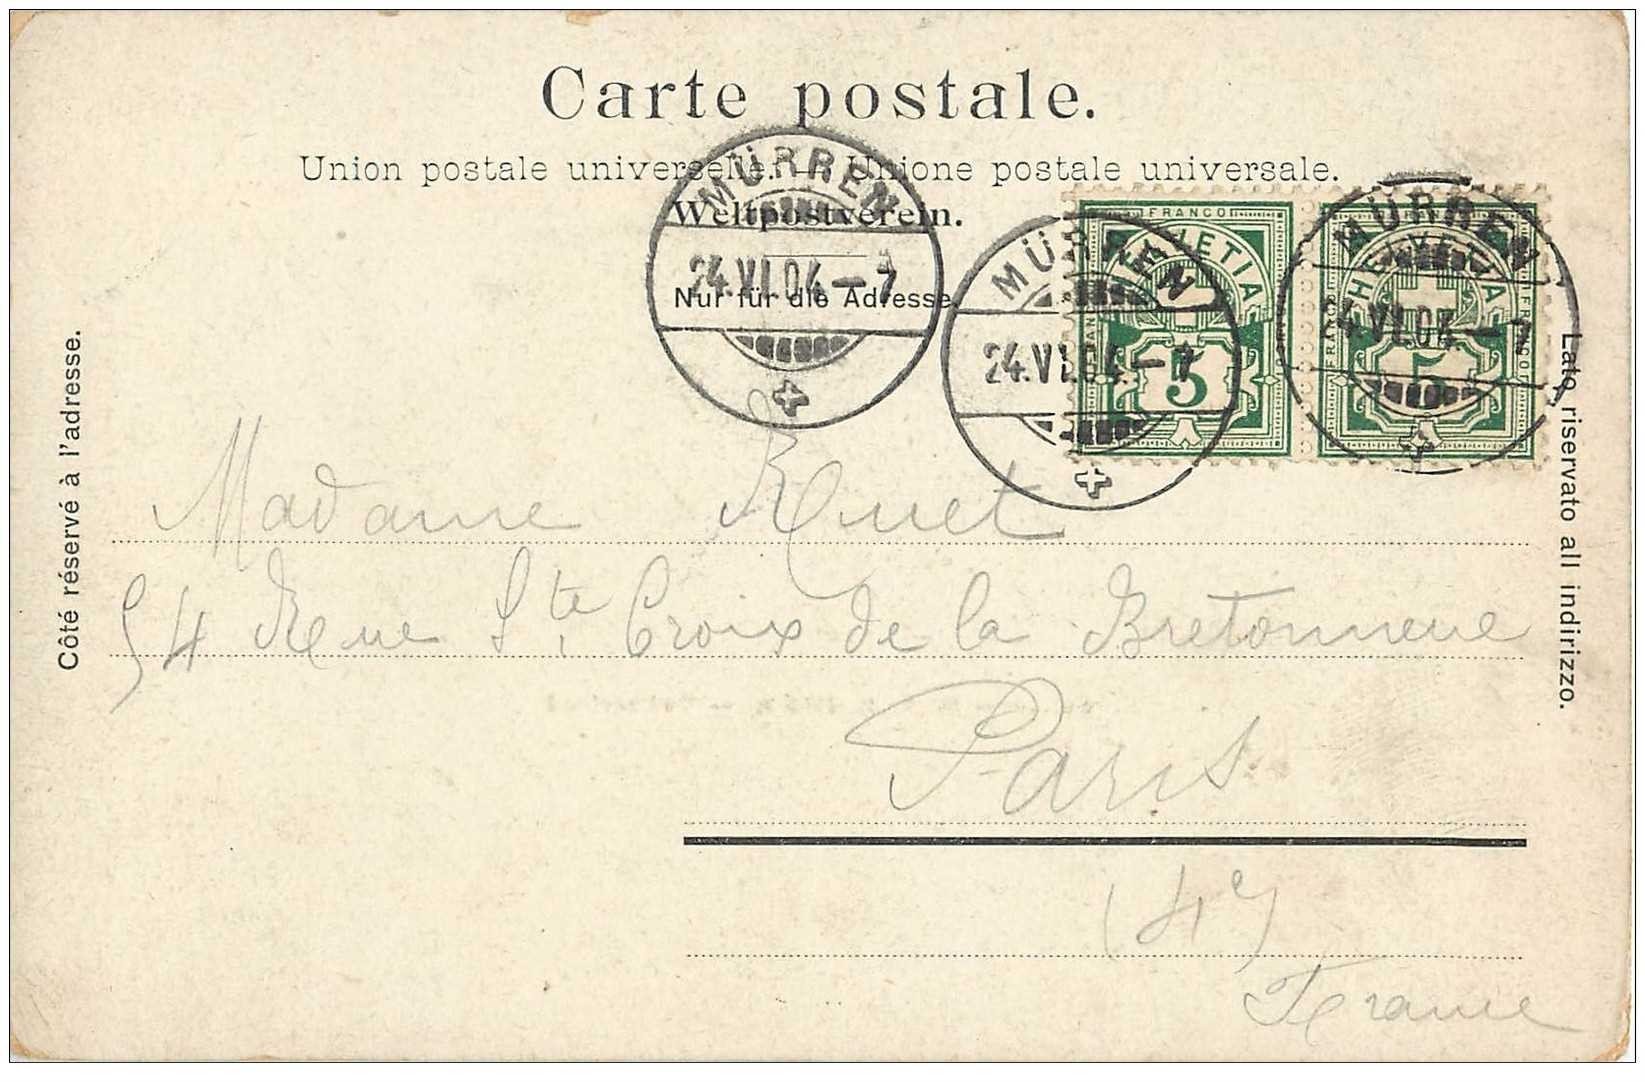 Carte postale.
Union postale universelle. — Unione postale universale.
Weltpostverein.
Nur für die Adresse.
MÜRREN
24.VI.04.—7
MÜRREN
24.VI.04.—7
MÜRREN
24.VI.04.—7
FRANCO
HELVETIA
5
HELVETIA
FRANCO
5
Côté réservé à l'adresse.
Lato riservato all indirizzo.
Madame Ruet
54 Rue Ste Croix de la Bretonneue
Paris
(4e)
France